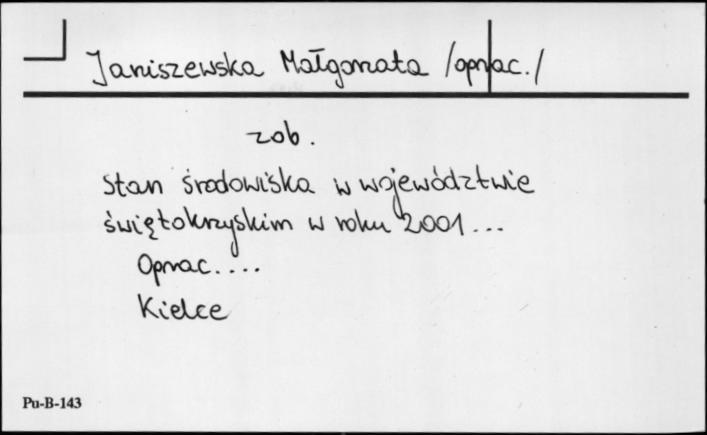 Janiszewska Małgorzata /oprac./
zob.
Stan środowiska w województwie
świętokrzyskim w roku 2001...
Oprac....
Kielce
Pu-B-143